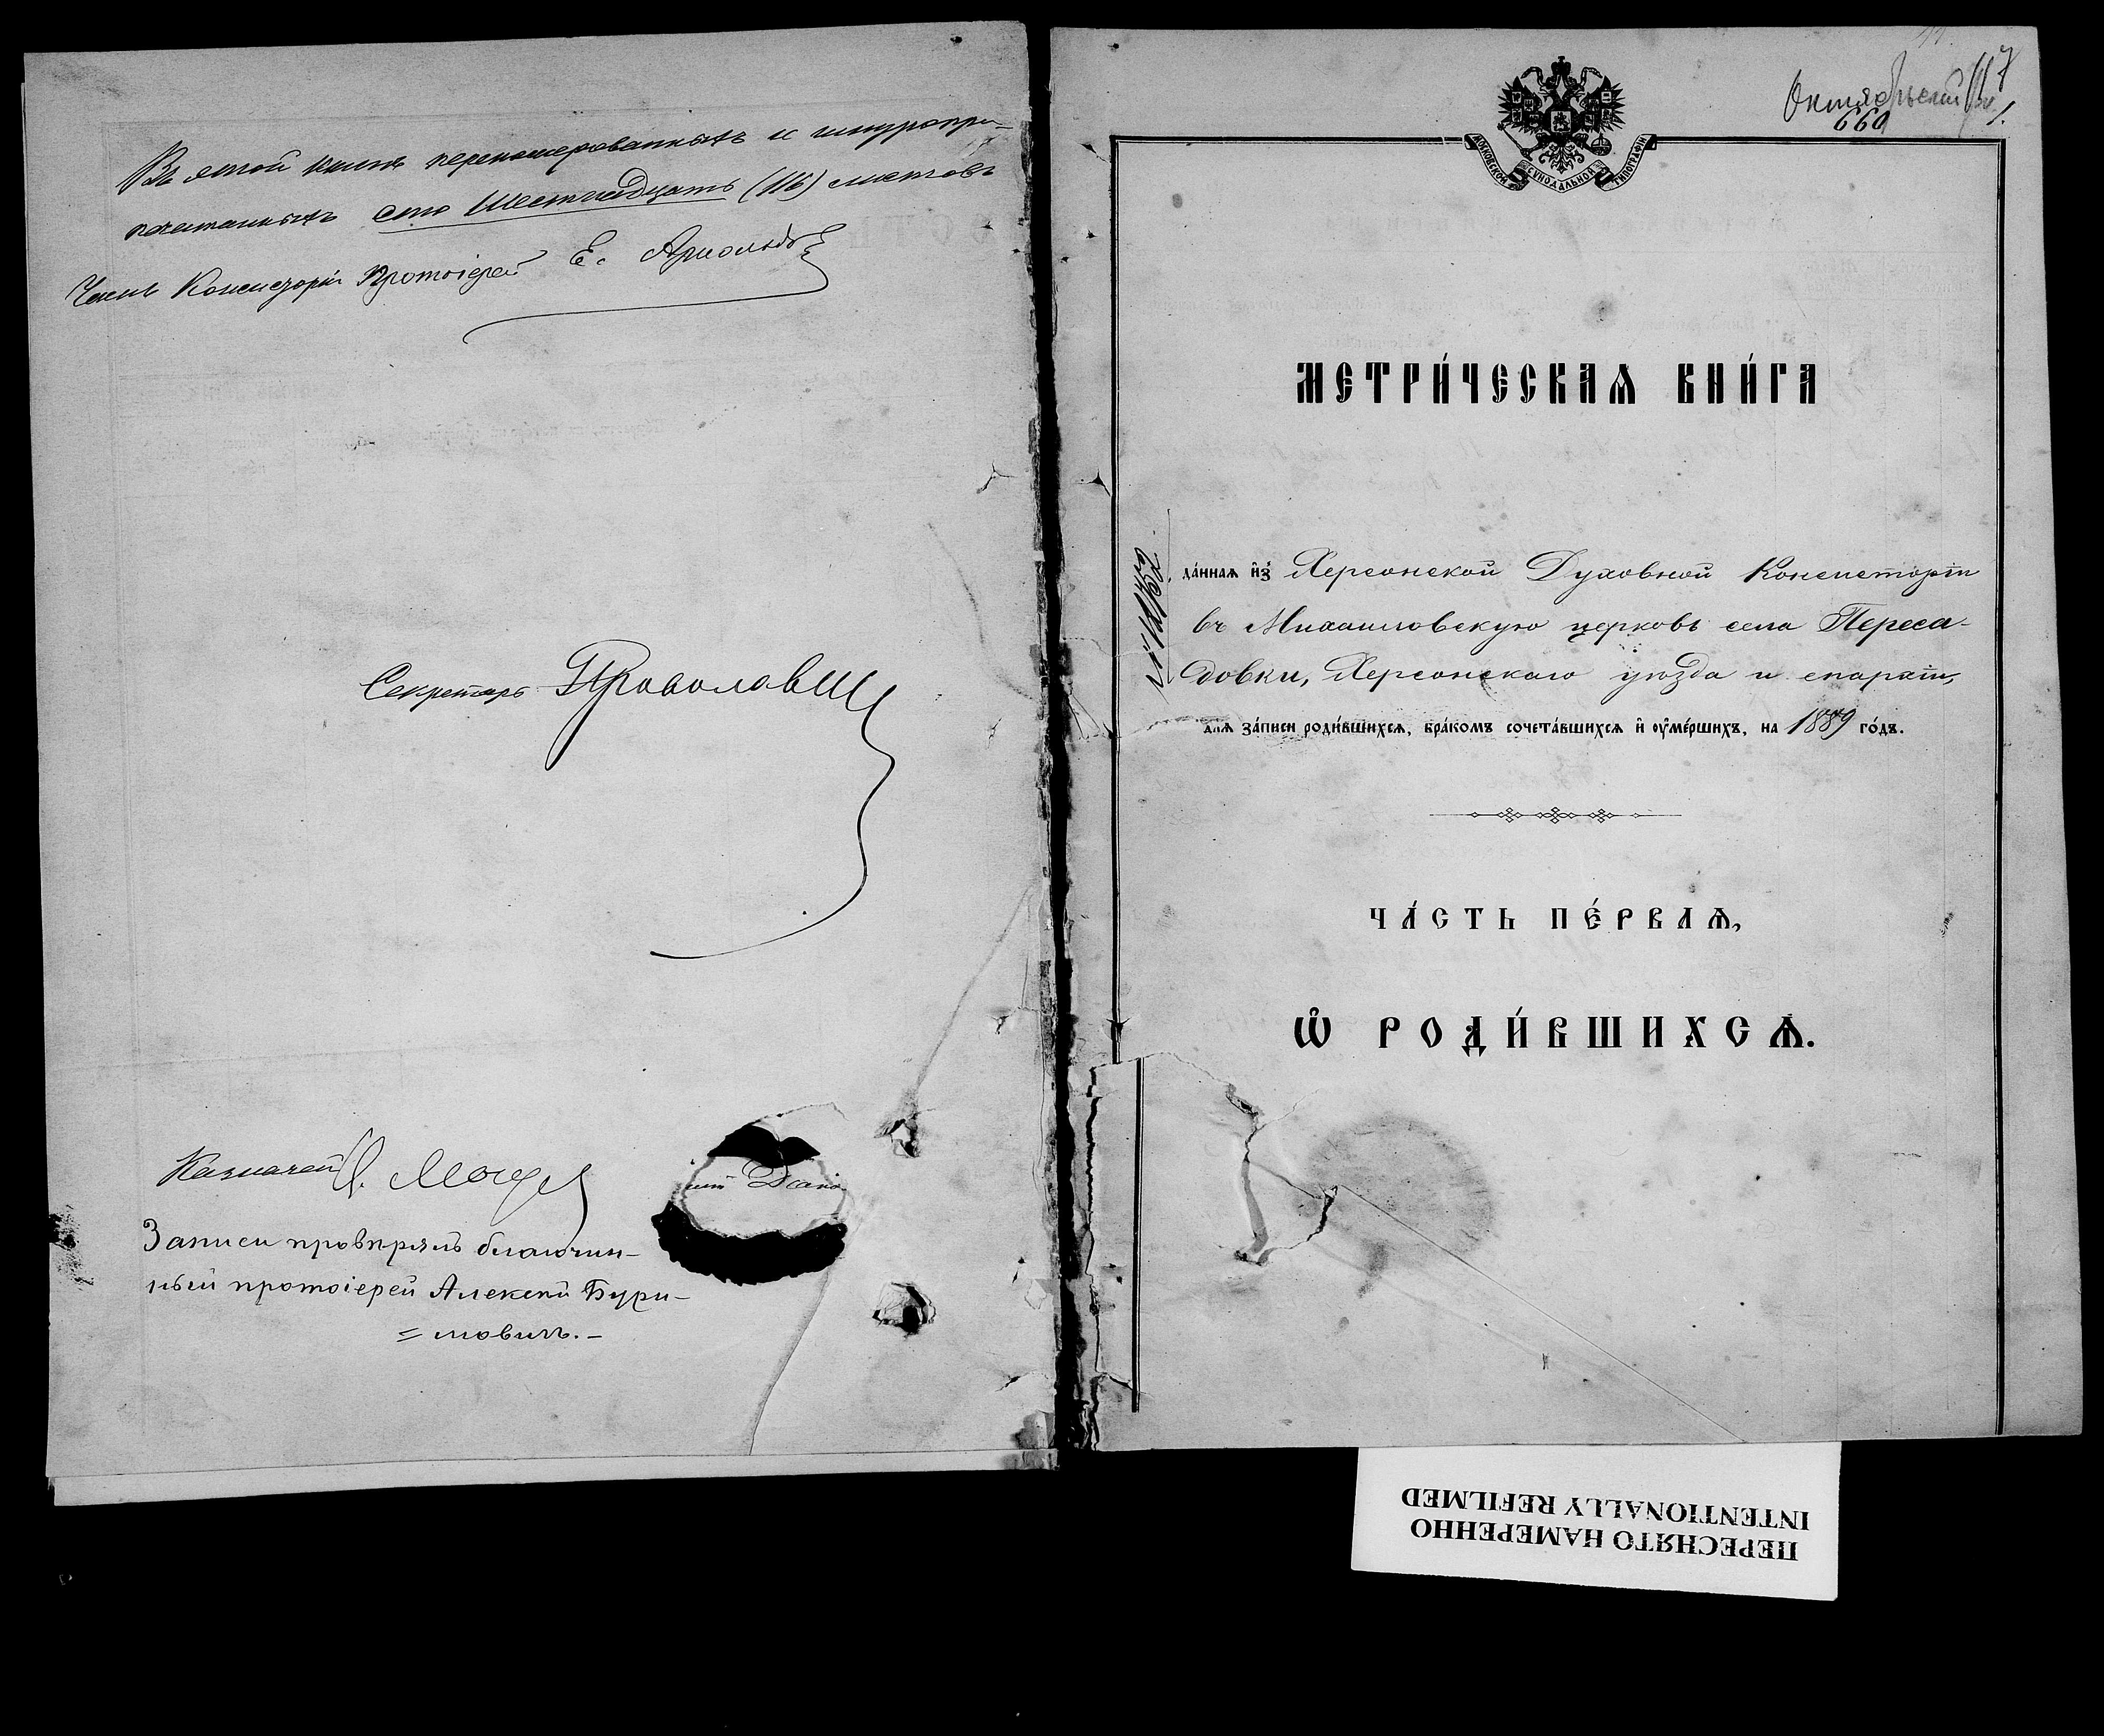 Въ этой книгѣ перенумерованныхъ и шнуропри-
печатанныхъ сто шестнадцать (116) листовъ
Членъ Консисторіи Протоіерей Е. Арнольдъ
Секретарь
Казначей
Записи провѣрялъ благочин-
ный протоіерей Алексѣй Бури-
= мовичъ. –
Октябрьский
660
117
МОСКОВСКОЙ СѴНОДАЛЬНОЙ ТИПОГРАФІИ
МЕТРИ́ЧЕСКАѦ КНИ́ГА
да́ннаѧ и҆з̾ Херсонской Духовной Консисторіи
въ Михаиловскую церковь села Переса-
довки, Херсонскаго уѣзда и епархіи,
длѧ за́писи роди́вшихсѧ, бра́комъ сочета́вшихсѧ и҆ ᲂу҆ме́ршихъ, на 1889 го́дъ.
ЧА́СТЬ ПЕ́РВАѦ,
Ѡ҆ РОДИ́ВШИХСѦ.
ПЕРЕСНЯТО НАМЕРЕННО
INTENTIONALLY REFILMED